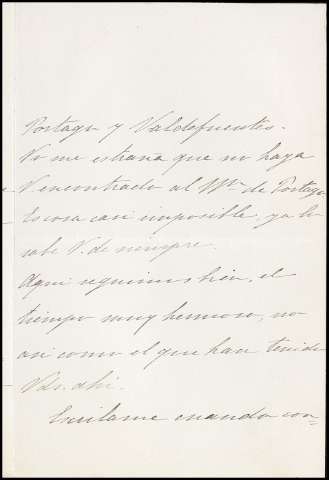 Portago y Valdefuentes.
No me estraña que no haya
V encontrado al Mqs de Portago.
Es cosa casi imposible, ya lo
sabe V. de siempre.
Aqui seguimos bien, el
tiempo muy hermoso, no
asi como el que han tenido
Vds. ahi.
cuando con=